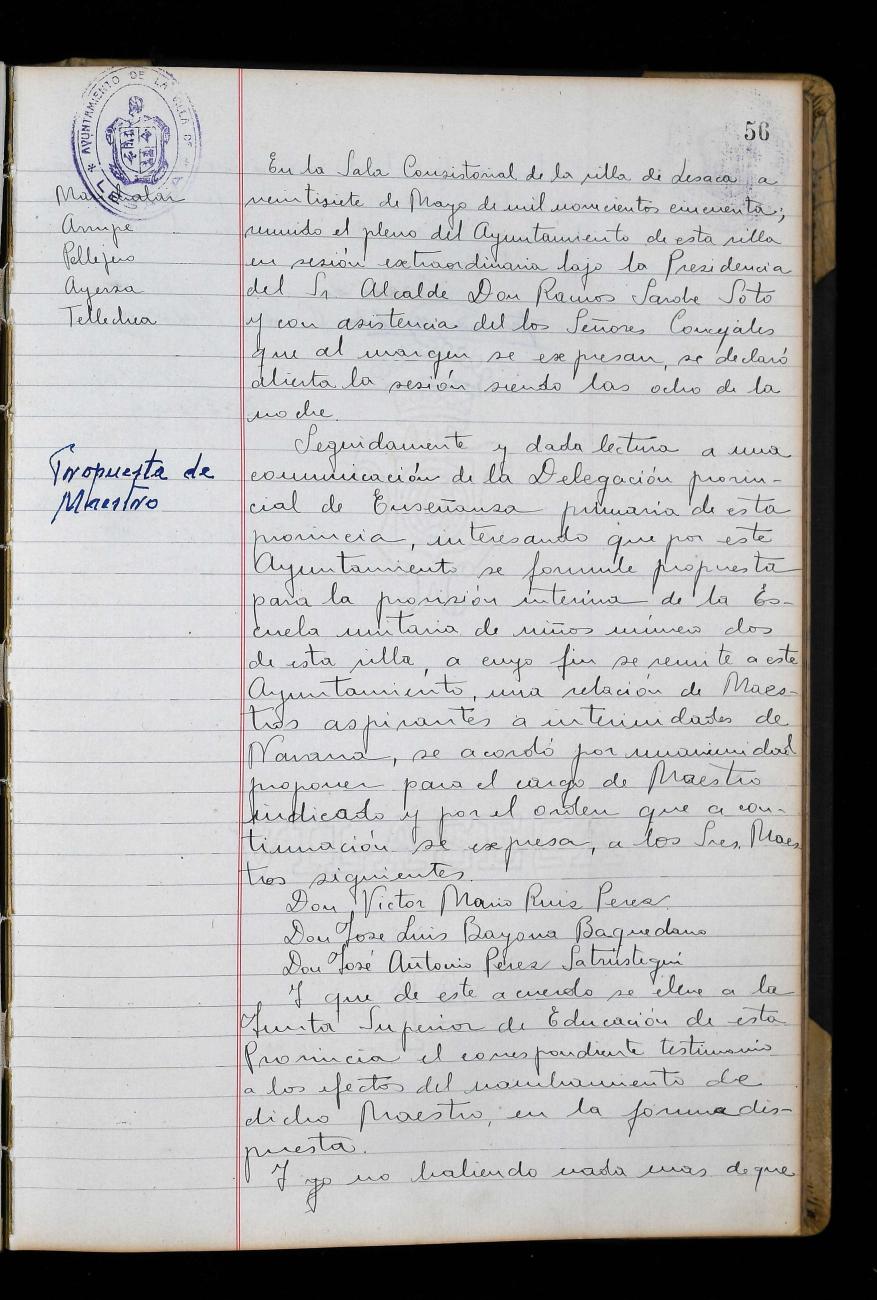 56
AYUNTAMIENTO DE LA VILLA DE
En la Sala Consistorial de la villa de Lesaca a
veintisiete de Mayo de mil novecientos cincuenta;
reunido el pleno del Ayuntamiento de esta villa
en sesión extraordinaria bajo la Presidencia
del Sr. Alcalde Don Ramos Sarobe Soto
y con asistencia del los Señores Concejales
que al margen se expresan, se declaró
abierta la sesión siendo las ocho de la
noche.
Arrupe
Pellejero
Ayerza
Tellechea
Propuesta de
Maestro
Seguidamente y dada lectura a una
comunicación de la Delegación provin-
cial de Enseñanza primaria de esta
provincia, interesando que por este
Ayuntamiento se formule propuesta
para la provisión interina de la Es-
cuela unitaria de niños número dos
de esta villa, a cuyo fin se remite a este
Ayuntamiento, una relación de Maes-
tros aspirantes a interinidades de
Navarra, se acordó por unanimidad
proponer para el cargo de Maestro
indicado y por el orden que a con-
tinuación se expresa, a los Sres. Maes
tros siguientes.
Don Victor Mario Ruiz Perez
Don Jose Luis Bayona Baquedano
Don José Antonio Pérez Satrústegui
Y que de este acuerdo se eleve a la
Junta Superior de Educación de esta
Provincia el correspondiente testimonio
a los efectos del nombramiento de
dicho Maestro, en la forma dis-
puesta.
Y yo no habiendo nada mas de que